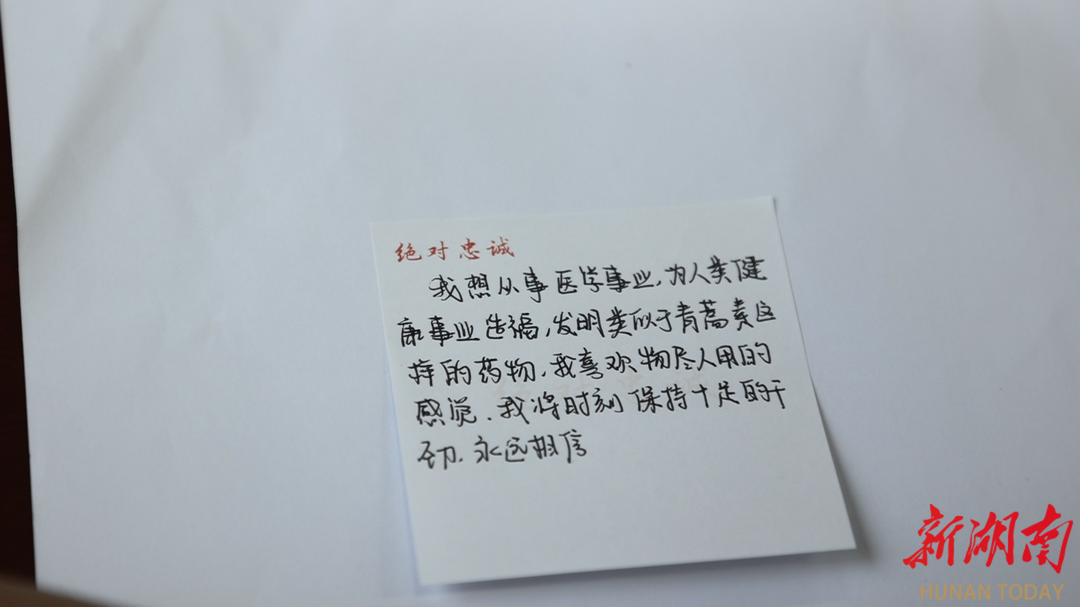 绝对忠诚
我想从事医学事业,为人类健
康事业造福,发明类似于青蒿素这
样的药物,我喜欢物尽人用的
感觉.我将时刻保持十足的干
劲.永远相信
新湖南
HUNAN TODAY